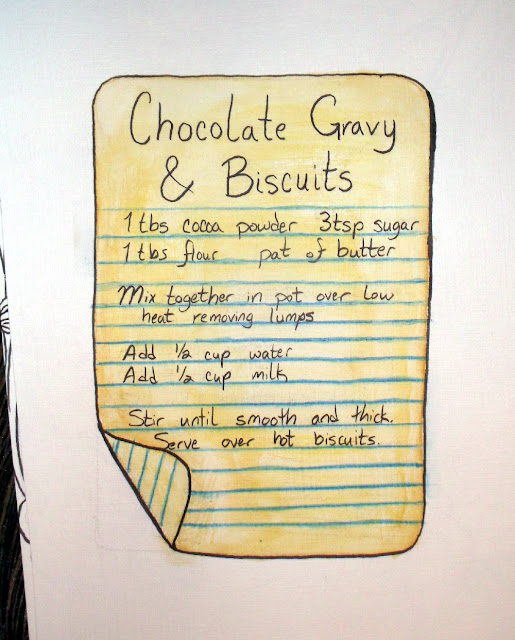 Chocolate Gravy
& Biscuits
1 tbs cocoa powder 3tsp sugar
1 tbs flour pat of butter
Mix together in pot over low
heat removing lumps
Add ½ cup water
Add ½ cup milk
Stir until smooth and thick.
Serve over hot biscuits.